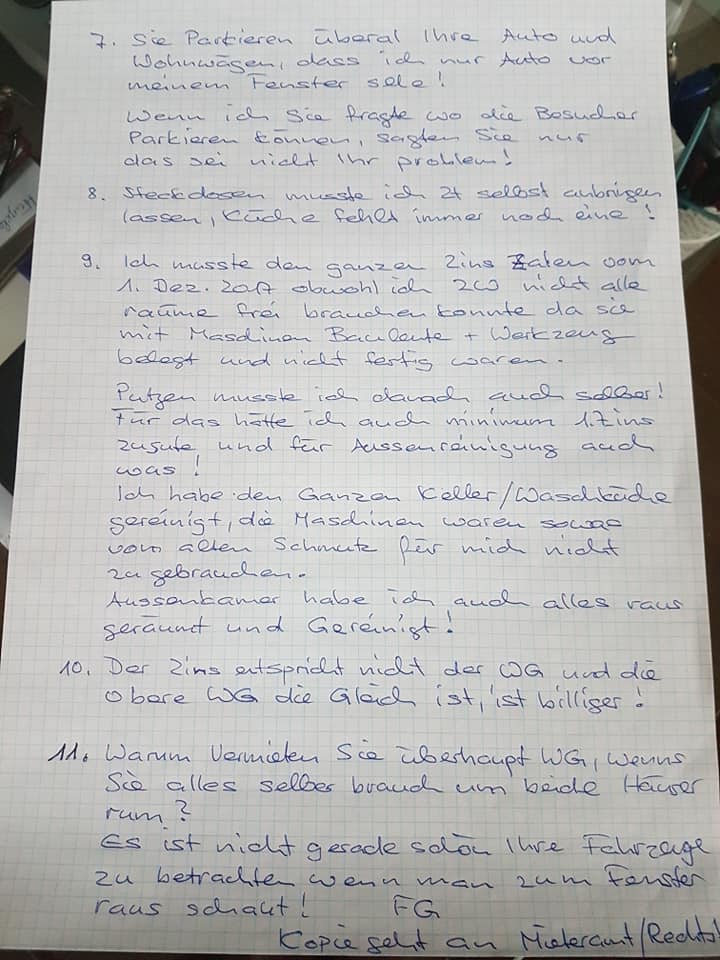 7. Sie Parkieren überal Ihre Auto und
Wohnwägen, dass ich nur Auto vor
meinem Fenster sehe!
Wenn ich Sie fragte wo die Besucher
Parkieren können, sagten Sie nur
das sei nicht Ihr problem!
8. Steckdosen musste ich 2t selbst anbringen
lassen, Küche fehlt immer noch eine!
9. Ich musste den ganzen Zins Zalen vom
1. Dez. 2017 obwohl ich nicht alle
räume frei brauchen konnte da sie
mit Maschinen Bauleute + Werkzeug
belegt und nicht fertig waren.
Putzen musste ich danach auch selber!
Für das hätte ich auch minimum 1. Zins
zugute und für Aussenreinigung auch
was!
Ich habe den Ganzen Keller/Waschküche
gereinigt, die Maschinen waren sowas
vom alten Schmutz für mich nicht
zu gebrauchen.
Aussenkamer habe ich auch alles raus
geräumt und Gereinigt!
10. Der Zins entspricht nicht der WG und die
obere WG die Gleich ist, ist billiger!
11. Warum Vermieten Sie überhaupt WG, wenns
Sie alles selber brauch um beide Häuser
rum?
Es ist nicht gerade schön Ihre Fahrzeuge
zu betrachten wenn man zum Fenster
raus schaut! FG
Kopie geht an Mieteramt/Rechts